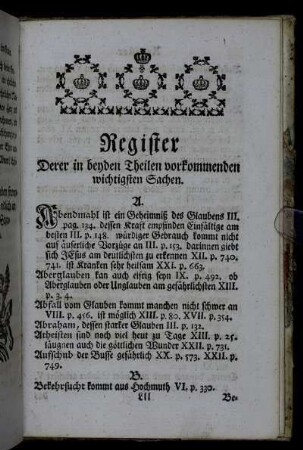 Register
Derer in beyden Theilen vorkommenden
wichtigsten Sachen.
A.
Abendmahl ist ein Geheimniß des Glaubens III.
pag. 134. dessen Kraft empfinden Einfältige am
besten III. p. 148. würdiger Gebrauch kommt nicht
auf äuserliche Vorzüge an III. p. 153. darinnen giebt
sich JEsus am deutlichsten zu erkennen XII. p. 740.
741. ist Krancken sehr heilsam XXI. p. 663.
Aberglauben kan auch eifrig seyn IX. p. 492. ob
Aberglauben oder Unglauben am gefährlichsten XIII.
p. 3. 4.
Abfall vom Glauben kommt manchen nicht schwer an
VIII. p. 456. ist möglich XIII. p. 80. XVII. p. 354.
Abraham, dessen starker Glauben III. p. 132.
Atheisten sind noch viel heut zu Tage XIII. p. 25.
läugnen auch die göttlichen Wunder XXII. p. 731.
Aufschub der Busse gefährlich XX. p. 573. XXII. p.
749.
B.
Bekehrsucht kommt aus Hochmuth VI. p. 330.
Lll Be-